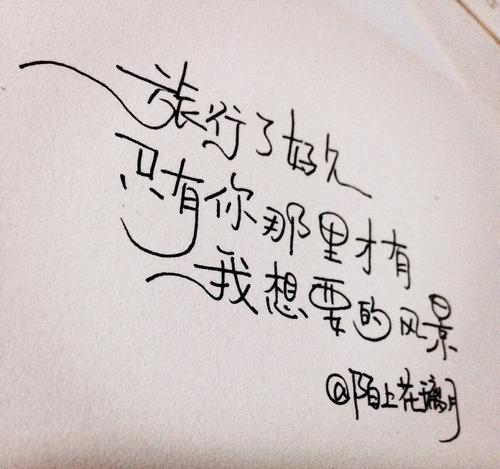 旅行了好久
只有你那里才有
我想要的风景
@陌上花璃月